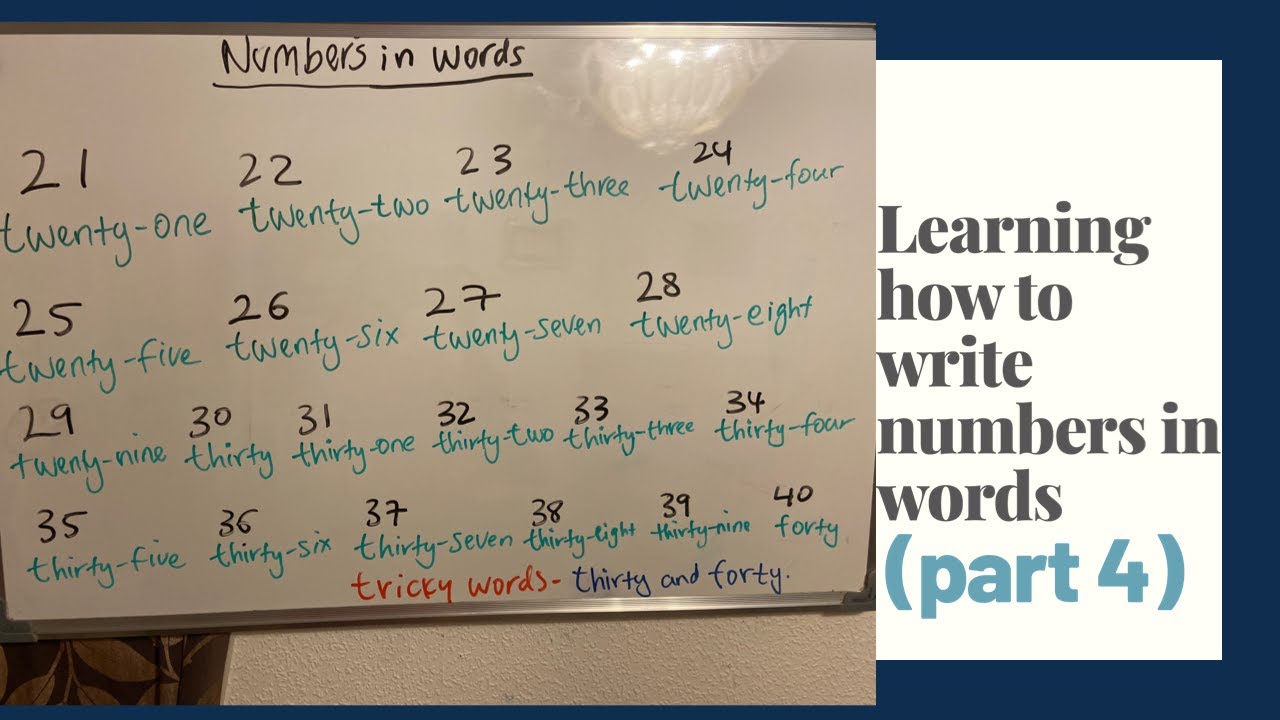 Numbers in words
21 22 23 24
twenty-one twenty-two twenty-three twenty-four
25 26 27 28
twenty-five twenty-six twenty-seven twenty-eight
29 30 31 32 33 34
twenty-nine thirty thirty-one thirty-two thirty-three thirty-four
35 36 37 38 39 40
thirty-five thirty-six thirty-seven thirty-eight thirty-nine forty
tricky words- thirty and forty.
Learning
how to
write
numbers in
words
(part 4)